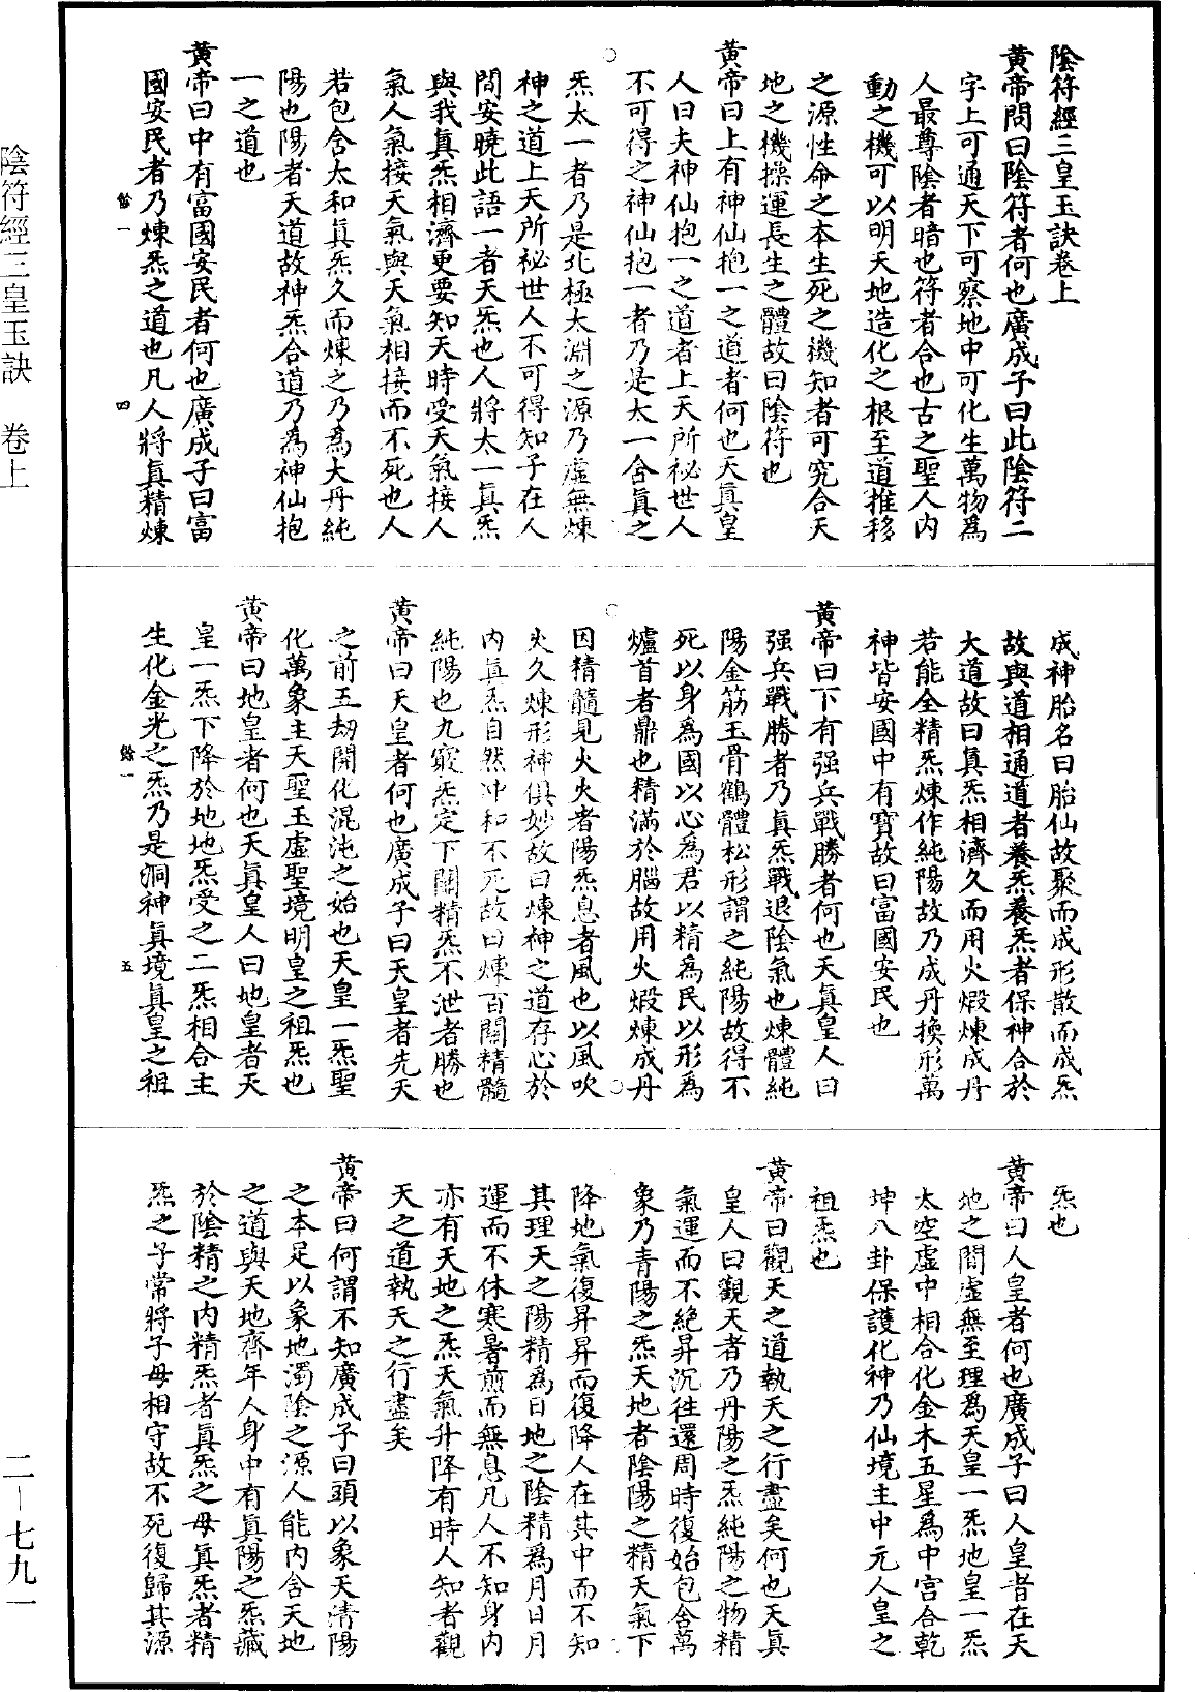 陰符經三皇玉訣卷上
黃帝問曰陰符者何也廣成子曰此陰符二
字上可通天下可察地中可化生萬物爲
人最尊陰者暗也符者合也古之聖人內
動之機可以明天地造化之根至道推移
之源性命之本生死之機知者可究合天
地之機操運長生之體故曰陰符也
黃帝曰上有神仙抱一之道者何也天真皇
人曰夫神仙抱一之道者上天所祕世人
不可得之神仙抱一者乃是太一含真之
炁太一者乃是北極太淵之源乃虛無煉
神之道上天所祕世人不可得知子在人
間安曉此語一者天炁也人將太一真炁
與我真炁相濟更要知天時受天氣接人
氣人氣接天氣與天氣相接而不死也人
若包含太和真炁久而煉之乃爲大丹純
陽也陽者天道故神炁合道乃爲神仙抱
一之道也
黃帝曰中有富國安民者何也廣成子曰富
國安民者乃煉炁之道也凡人將真精煉
餘一 四
成神胎名曰胎仙故聚而成形散而成炁
故與道相通道者養炁養炁者保神合於
大道故曰真炁相濟久而用火煅煉成丹
若能全精炁煉作純陽故乃成丹換形萬
神皆安國中有寶故曰富國安民也
黃帝曰下有强兵戰勝者何也天真皇人曰
强兵戰勝者乃真炁戰退陰氣也煉體純
陽金筋玉骨鶴體松形謂之純陽故得不
死以身爲國以心爲君以精爲民以形爲
爐首者鼎也精滿於腦故用火煅煉成丹
因精髓見火火者陽炁息者風也以風吹
火久煉形神俱妙故曰煉神之道存心於
內真炁自然沖和不死故曰煉百關精髓
純陽也九竅炁定下關精炁不泄者勝也
黃帝曰天皇者何也廣成子曰天皇者先天
之前五劫開化混沌之始也天皇一炁聖
化萬象主天聖玉虛聖境明皇之祖炁也
黃帝曰地皇者何也天真皇人曰地皇者天
皇一炁下降於地地炁受之二炁相合主
生化金光之炁乃是洞神真境真皇之祖
餘一 五
炁也
黃帝曰人皇者何也廣成子曰人皇者在天
地之間虛無至理爲天皇一炁地皇一炁
太空虛中相合化金木五星爲中宮合乾
坤八卦保護化神乃仙境主中元人皇之
祖炁也
黃帝曰觀天之道執天之行盡矣何也天真
皇人曰觀天者乃丹陽之炁純陽之物精
氣運而不絕昇沉往還周時復始包含萬
象乃青陽之炁天地者陰陽之精天氣下
降地氣復昇昇而復降人在其中而不知
其理天之陽精爲日地之陰精爲月日月
運而不休寒暑煎而無息凡人不知身內
亦有天地之炁天氣升降有時人知者觀
天之道執天之行盡矣
黃帝曰何謂不知廣成子曰頭以象天清陽
之本足以象地濁陰之源人能內含天地
之道與天地齊年人身中有真陽之炁藏
於陰精之內精炁者真炁之母真炁者精
炁之子常將子母相守故不死復歸其源
陰符經三皇玉訣 卷上
二－七九一